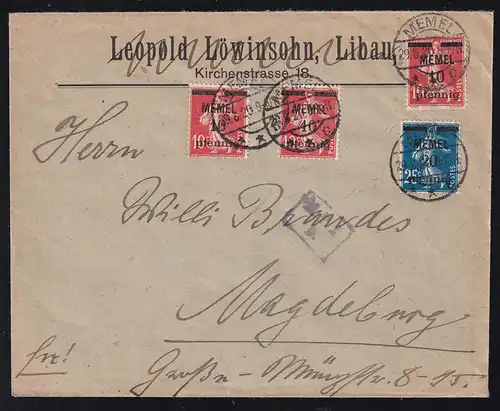 Leopold Löwinsohn, Libau,
Kirchenstrasse 18.
MEMEL
MEMEL
10
pfennig
10c
MEMEL
10
pfennig
10c
MEMEL
10
pfennig
MEMEL
20
pfennig
25c
POSTES
Herrn
Willi Brandes
Magdeburg
Große-Münzstr. 8-15.